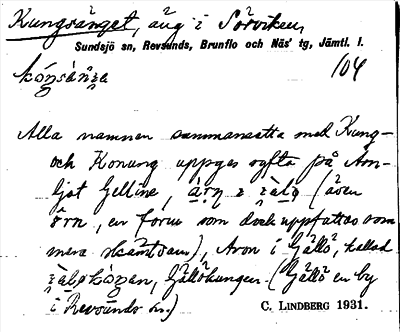 Kungsänget, äng i Sörviken,
Sundsjö sn, Revsunds, Brunflo och Näs' tg, Jämtl. l.
104
Alla namnen sammansatta med Kung-
och Konung uppges syfta på Arn-
ljot Gelline, (även
Örn, en form som dock uppfattas som
mera skämtsam), Aron i Gällö, kallad
Gällökungen. (Gällö en by
i Revsunds sn.)
C. LINDBERG 1931.